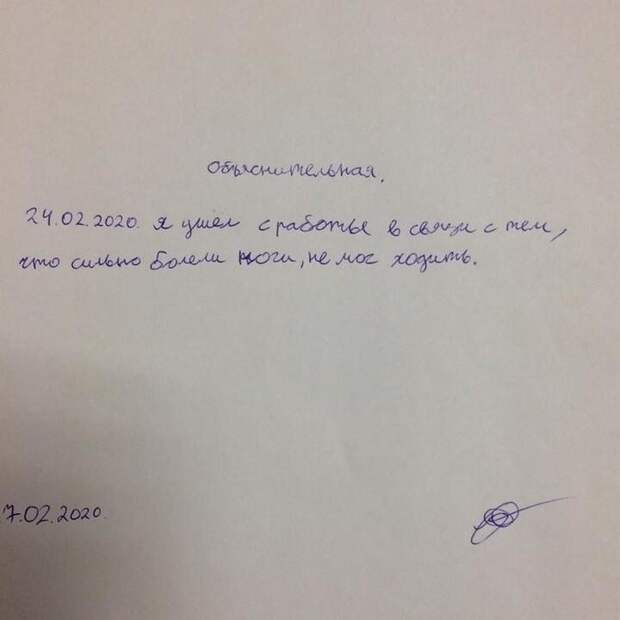 Объяснительная.
24.02.2020. я ушел с работы в связи с тем,
что сильно болели ноги, не мог ходить.
7.02.2020